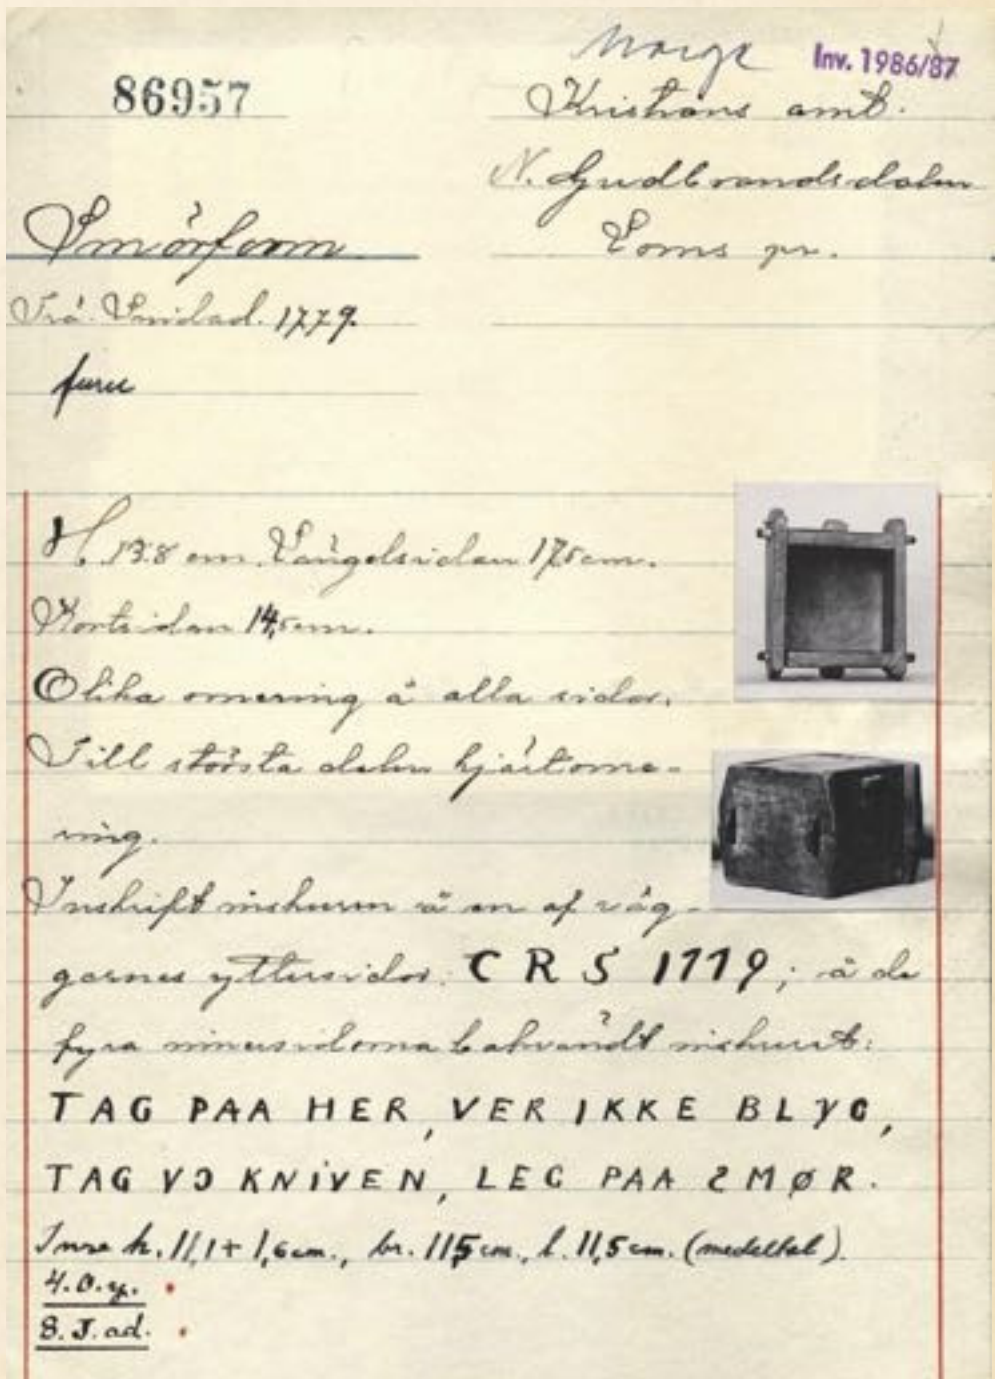 Norge
Inv. 1986/87
86957
Kristians amt.
N. Gudbrandsdalen
Smörform
Loms pr.
Trä. Snidad. 1779.
furu
H. 13.8 cm. Längdsidan 17,5 cm.
Kortsidan 14,5 cm.
Olika ornering å alla sidor.
Till största delen hjärtorne-
ring.
Inskrift inskuren å en af väg-
garnes yttersidor: C R S 1779; å de
fyra innersidorna bakvändt inskuret:
TAG PAA HER, VER IKKE BLYG,
TAG VD KNIVEN, LEG PAA SMØR.
Inre h. 11,1 + 1,6 cm., br. 11,5 cm., l. 11,5 cm. (medeltal).
4.O.y.
8.J.ad.